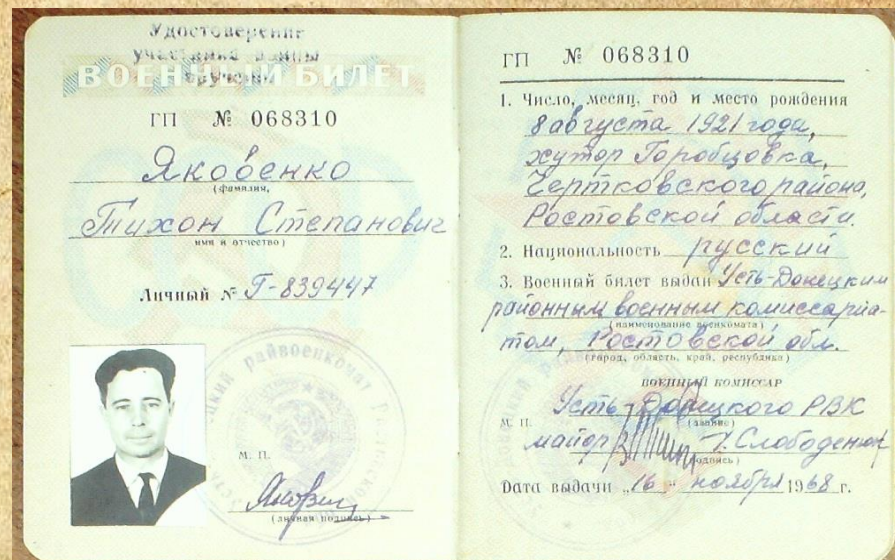 Удостоверение
участника войны
вручено
ВОЕННЫЙ БИЛЕТ
ГП № 068310
Яковенко
(фамилия,
Тихон Степанович
имя и отчество)
Личный № Г-839447
М. П.
(личная подпись)
ГП № 068310
1. Число, месяц, год и место рождения
8 августа 1921 года,
хутор Горобцовка,
Чертковского района,
Ростовской области.
2. Национальность русский
3. Военный билет выдан Усть-Донецким
районным военным комиссариа-
(наименование военкомата)
том, Ростовской обл.
(город, область, край, республика)
ВОЕННЫЙ КОМИССАР
Усть-Донецкого РВК
М. П. (звание)
майор Слободенюк
(подпись)
Дата выдачи „16" ноября 1968 г.